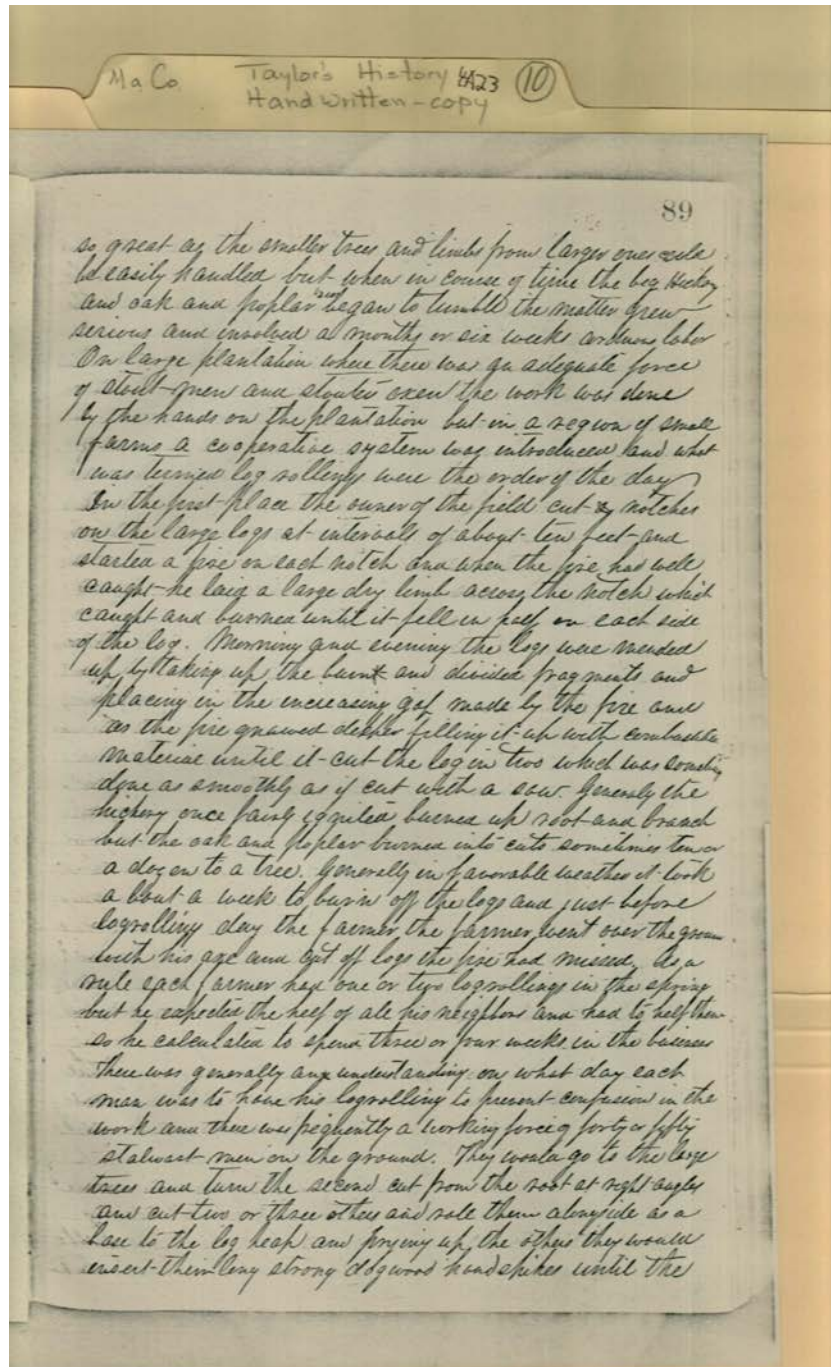 Ma Co Taylor's History 4A23 10
Handwritten - copy
89
so great as the smaller trees and limbs from larger ones could
be easily handled but when in course of time the big Hickory
and oak and poplar began to tumble the matter grew
serious and involved a months or six weeks arduous labor
On large plantation where there was an adequate force
of stout men and stouter oxen the work was done
by the hands on the plantation but in a region of small
farms a cooperative system was introduced and what
was termed log rollings were the order of the day
In the first place the owner of the field cut notches
on the large logs at intervals of about ten feet and
started a fire on each notch and when the fire had well
caught he laid a large dry limb across the notch which
caught and burned until it fell in half on each side
of the log. Morning and evening the logs were mended
up by taking up the burnt and divided fragments and
placing in the increasing gap made by the fire and
as the fire gnawed deeper filling it up with combustible
material until it cut the log in two which was
done as smoothly as if cut with a saw. Generally the
hickory once fairly ignited burned up root and branch
but the oak and poplar burned into cuts sometimes ten or
a dozen to a tree. Generally in favorable weather it took
a bout a week to burn off the logs and just before
logrolling day the farmer the farmer went over the ground
with his axe and cut off logs the fire had missed. As a
rule each farmer had one or two logrollings in the spring
but he expected the help of all his neighbors and had to help them
so he calculated to spend three or four weeks in the business
there was generally any understanding on what day each
man was to have his logrolling to prevent confusion in the
work and there was frequently a working force of forty or fifty
stalwart men on the ground. They would go to the large
trees and turn the second cut from the root at right angles
and cut two or three others and role them alongside as a
base to the log heap and prying up the others they would
insert their long strong dogwood handspikes until the